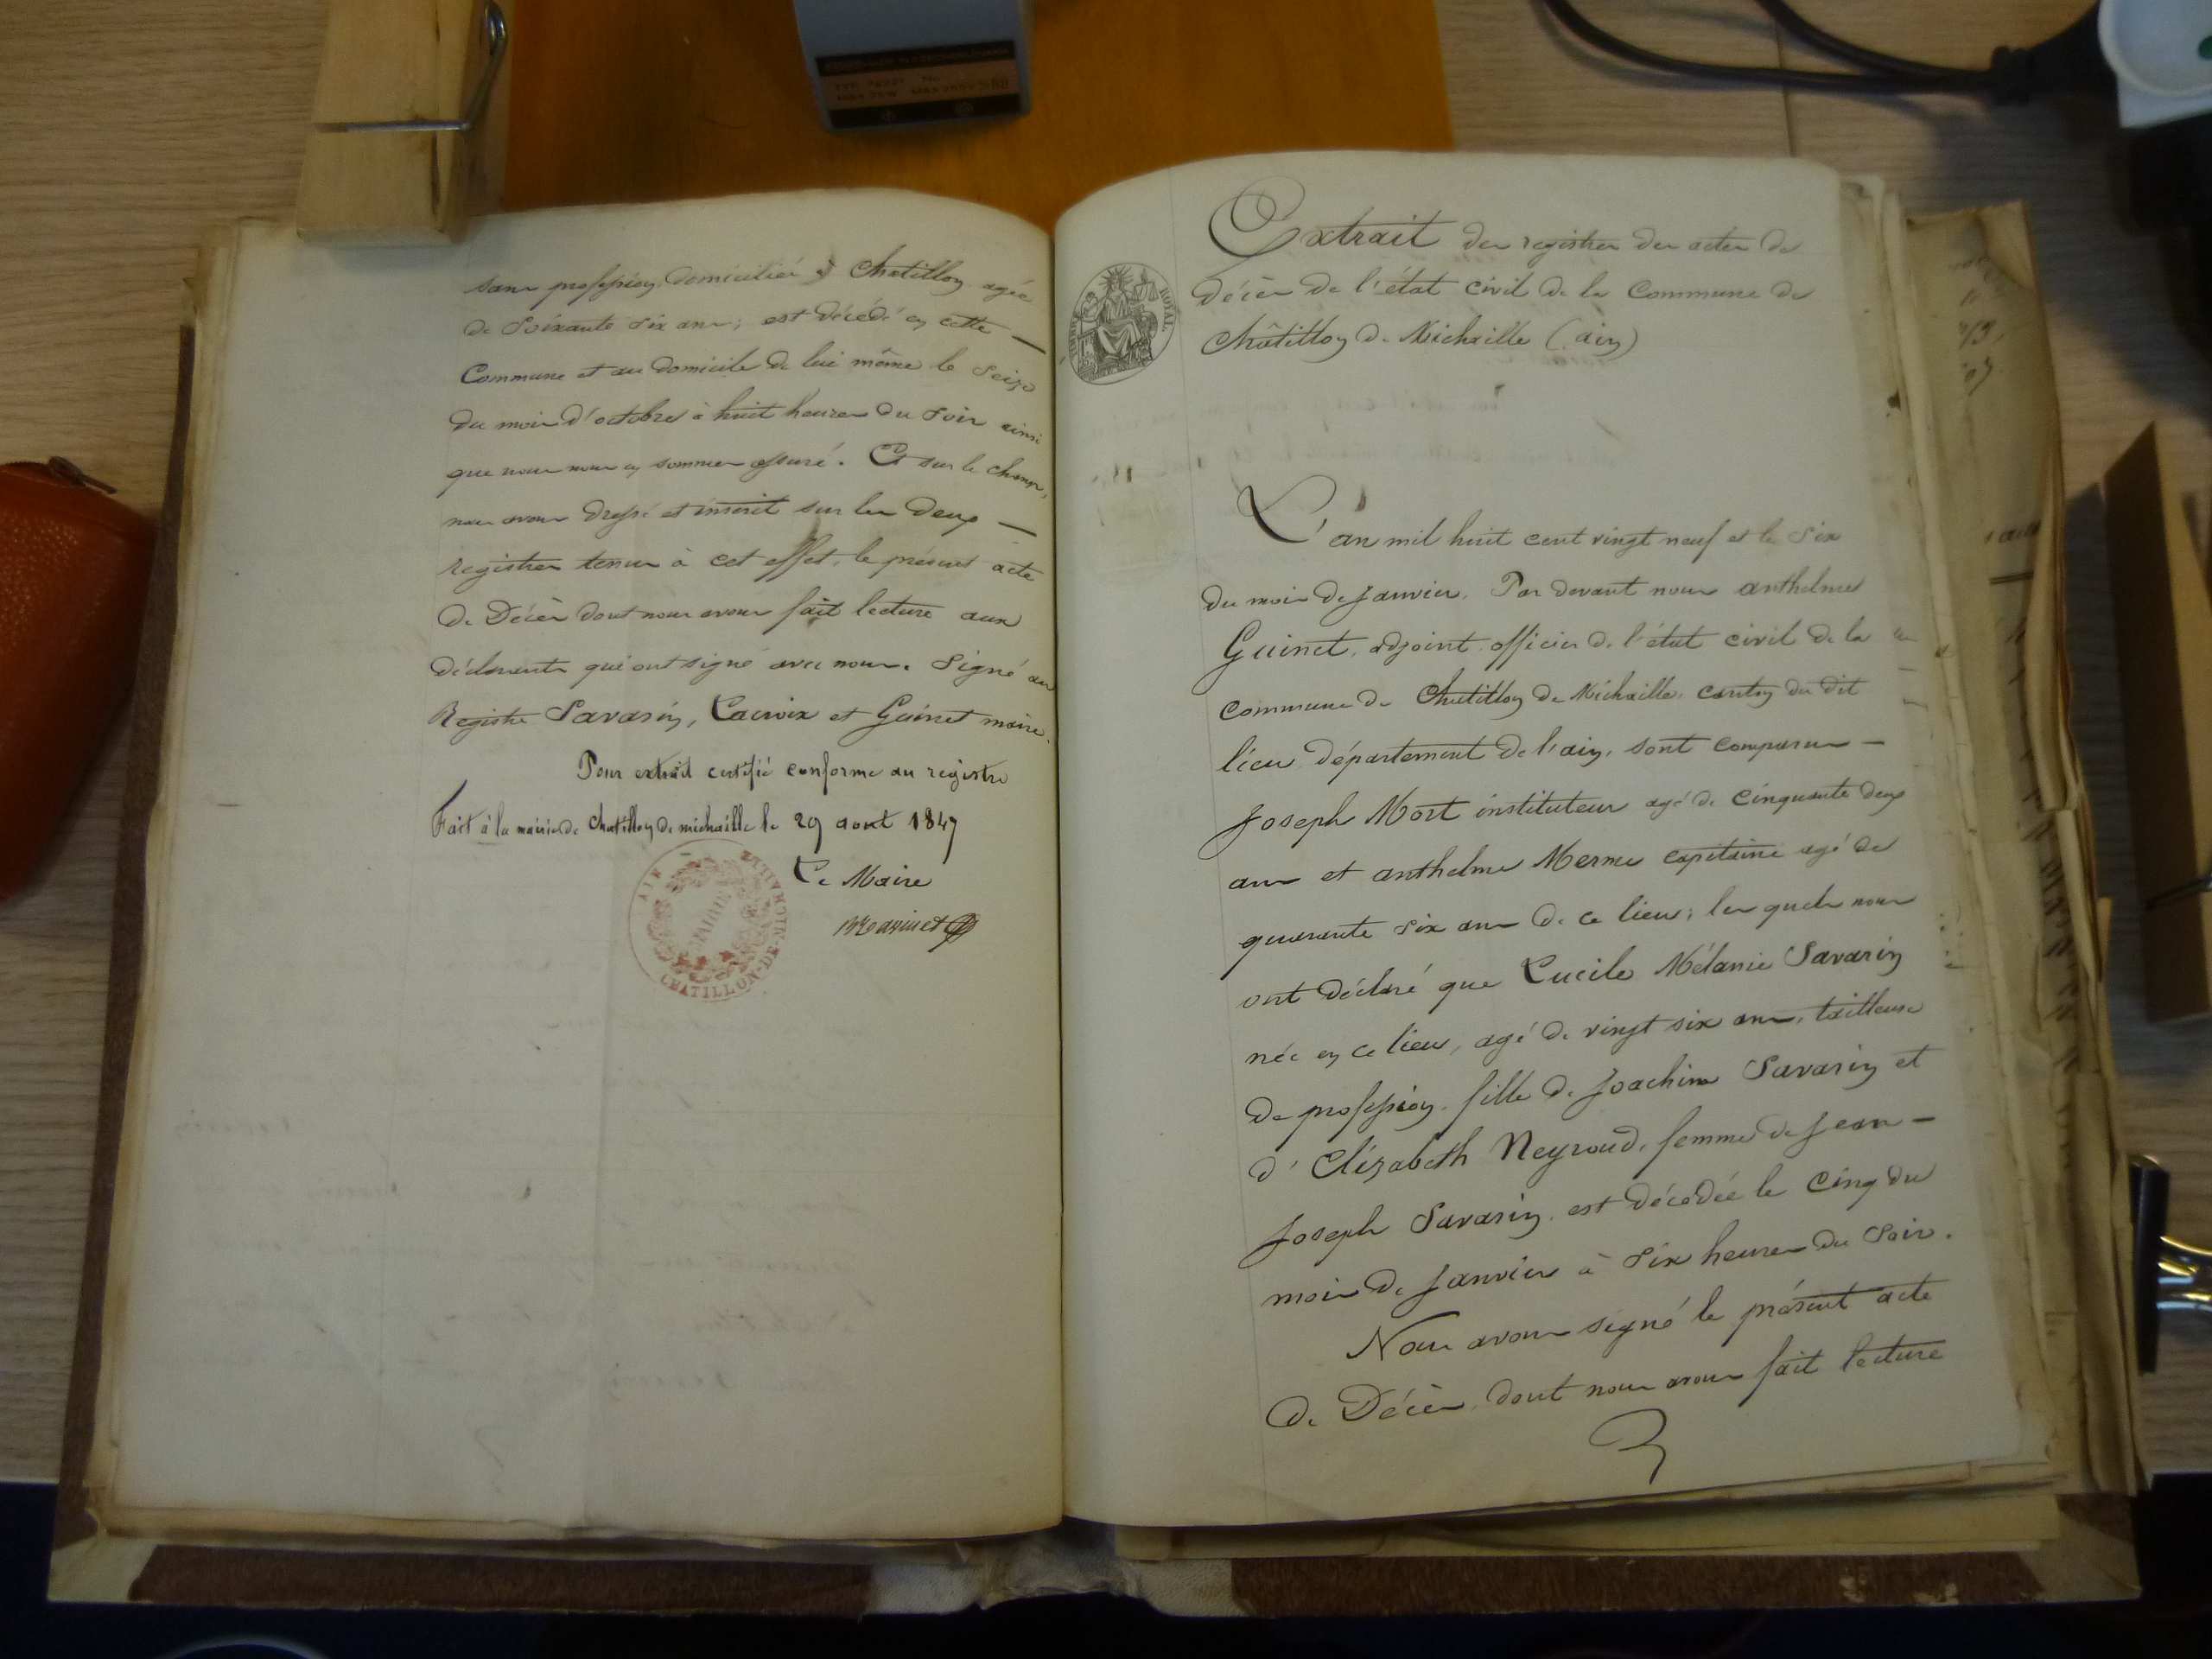 sans profession, domicilié à Chatillon agée
de Soixante six ans; est décédé en cette —
Commune et au domicile de lui même le Seize
du mois d'octobre à huit heures du soir ainsi
que nous nous en sommes assuré. Et sur le champ,
nous avons dressé et inscrit sur les deux —
registres tenus à cet effet, le présent acte
de Décès dont nous avons fait lecture aux
déclarants qui ont signé avec nous. Signé au
Registre Savarin, Lacroix et Guinet maire.
Pour extrait certifié conforme au registre
Fait à la mairie de Chatillon de michaille le 29 aout 1847
Le Maire
AIN
MAIRIE
CHATILLON-DE-MICHAILLE
Extrait des registres des actes de
décès de l'état civil de la Commune de
Châtillon de Michaille (ain)
TIMBRE ROYAL
L'an mil huit cent vingt neuf et le Six
du mois de Janvier, Par devant nous anthelme
Guinet, adjoint, officier de l'état civil de la
Commune de Chatillon de Michaille, canton du dit
lieu département de l'ain, sont comparus —
Joseph Mort instituteur agé de cinquante deux
ans et anthelme Merme capitaine agé de
quarante six ans de ce lieu; les quels nous
ont déclaré que Lucile Mélanie Savarin
née en ce lieu, agé de vingt six ans, tailleuse
de profession, fille de Joachim Savarin et
d'Elizabeth Neyroud, femme de Jean —
Joseph Savarin, est décédée le Cinq du
mois de Janvier à Six heures du Soir.
Nous avons signé le présent acte
de Décès, dont nous avons fait lecture